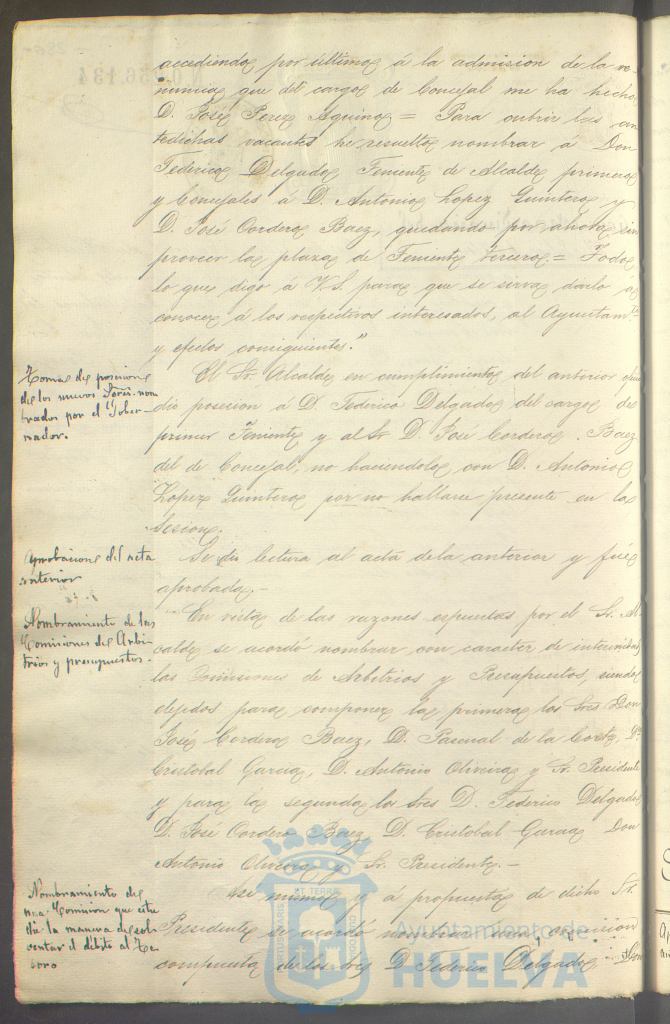 accediendo por último á la admision de la re-
nuncia que del cargo de Concejal me ha hecho
D. José Perez Aquino = Para cubrir las an
tedichas vacantes he resuelto nombrar á Don
Federico Delgado Teniente de Alcalde primero
y Concejales á D. Antonio Lopez Quintero y
D. José Cordero Baez, quedando por ahora sin
proveer la plaza de Teniente tercero. = Todo
lo que digo á V.S. para que se sirva darlo a
conocer á los respectivos interesados, al Ayuntamto
y efectos consiguientes."
Toma de posesion
de los nuevos Sres. nom
brados por el Gober-
nador.
El Sr. Alcalde en cumplimiento del anterior
dio posesion á D. Federico Delgado del cargo de
primer Teniente y al Sr D. José Cordero Baez
del de Concejal, no haciendolo con D. Antonio
Lopez Quintero por no hallarse presente en la
Sesion.
Aprobacion del acta
anterior
Se dio lectura al acta de la anterior y fué
aprobada.-
Nombramiento de las
Comisiones de Arbi-
trios y presupuestos.
En vista de las razones espuestas por el Sr. Al
calde se acordó nombrar con caracter de interinidad
las Comisiones de Arbitrios y Presupuestos, siendo
elejidos para componer la primera los Sres Don
José Cordero Baez, D. Pascual de la Corte, Dn
Cristobal Garcia, D. Antonio Oliveira y Sr. Presidente
y para la segunda los Sres D. Federico Delgado
D. José Cordero Baez D. Cristobal Garcia Don
Antonio Oliveira y Sr. Presidente.-
Nombramiento de
una Comision que estu
die la manera de sol
ventar el débito al Te-
soro
Asi mismo y á propuesta de dicho Sr.
Presidente se acordó nombrar una comision
compuesta de los Sres D. Federico Delgado Don
Ayuntamiento de
HUELVA